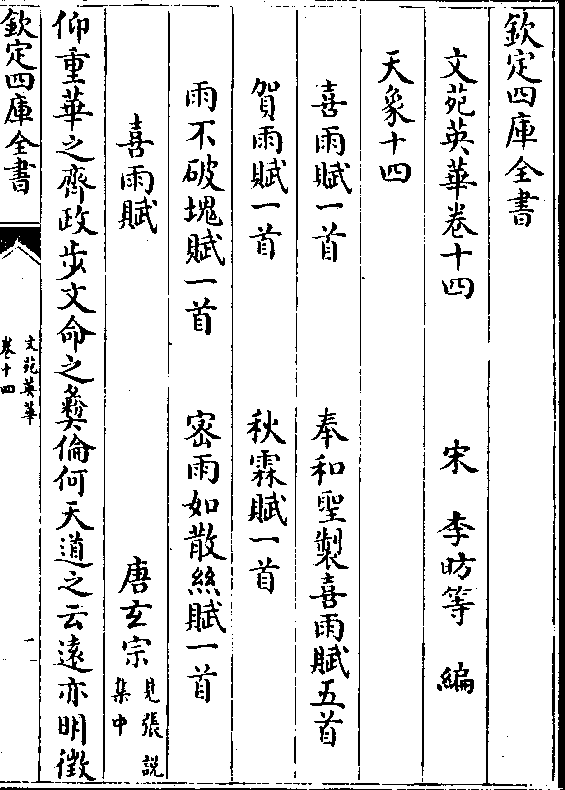 欽定四庫全書
文苑英華卷十四 宋 李昉等 編
天象十四
喜雨賦一首 奉和聖製喜雨賦五首
賀雨賦一首 秋霖賦一首
雨不破塊賦一首 密雨如散絲賦一首
喜雨賦 唐玄宗 見張說集中
仰重華之齊政步文命之彛倫何天道之云遠亦明徵
欽定四庫全書 文苑英華卷十四 一